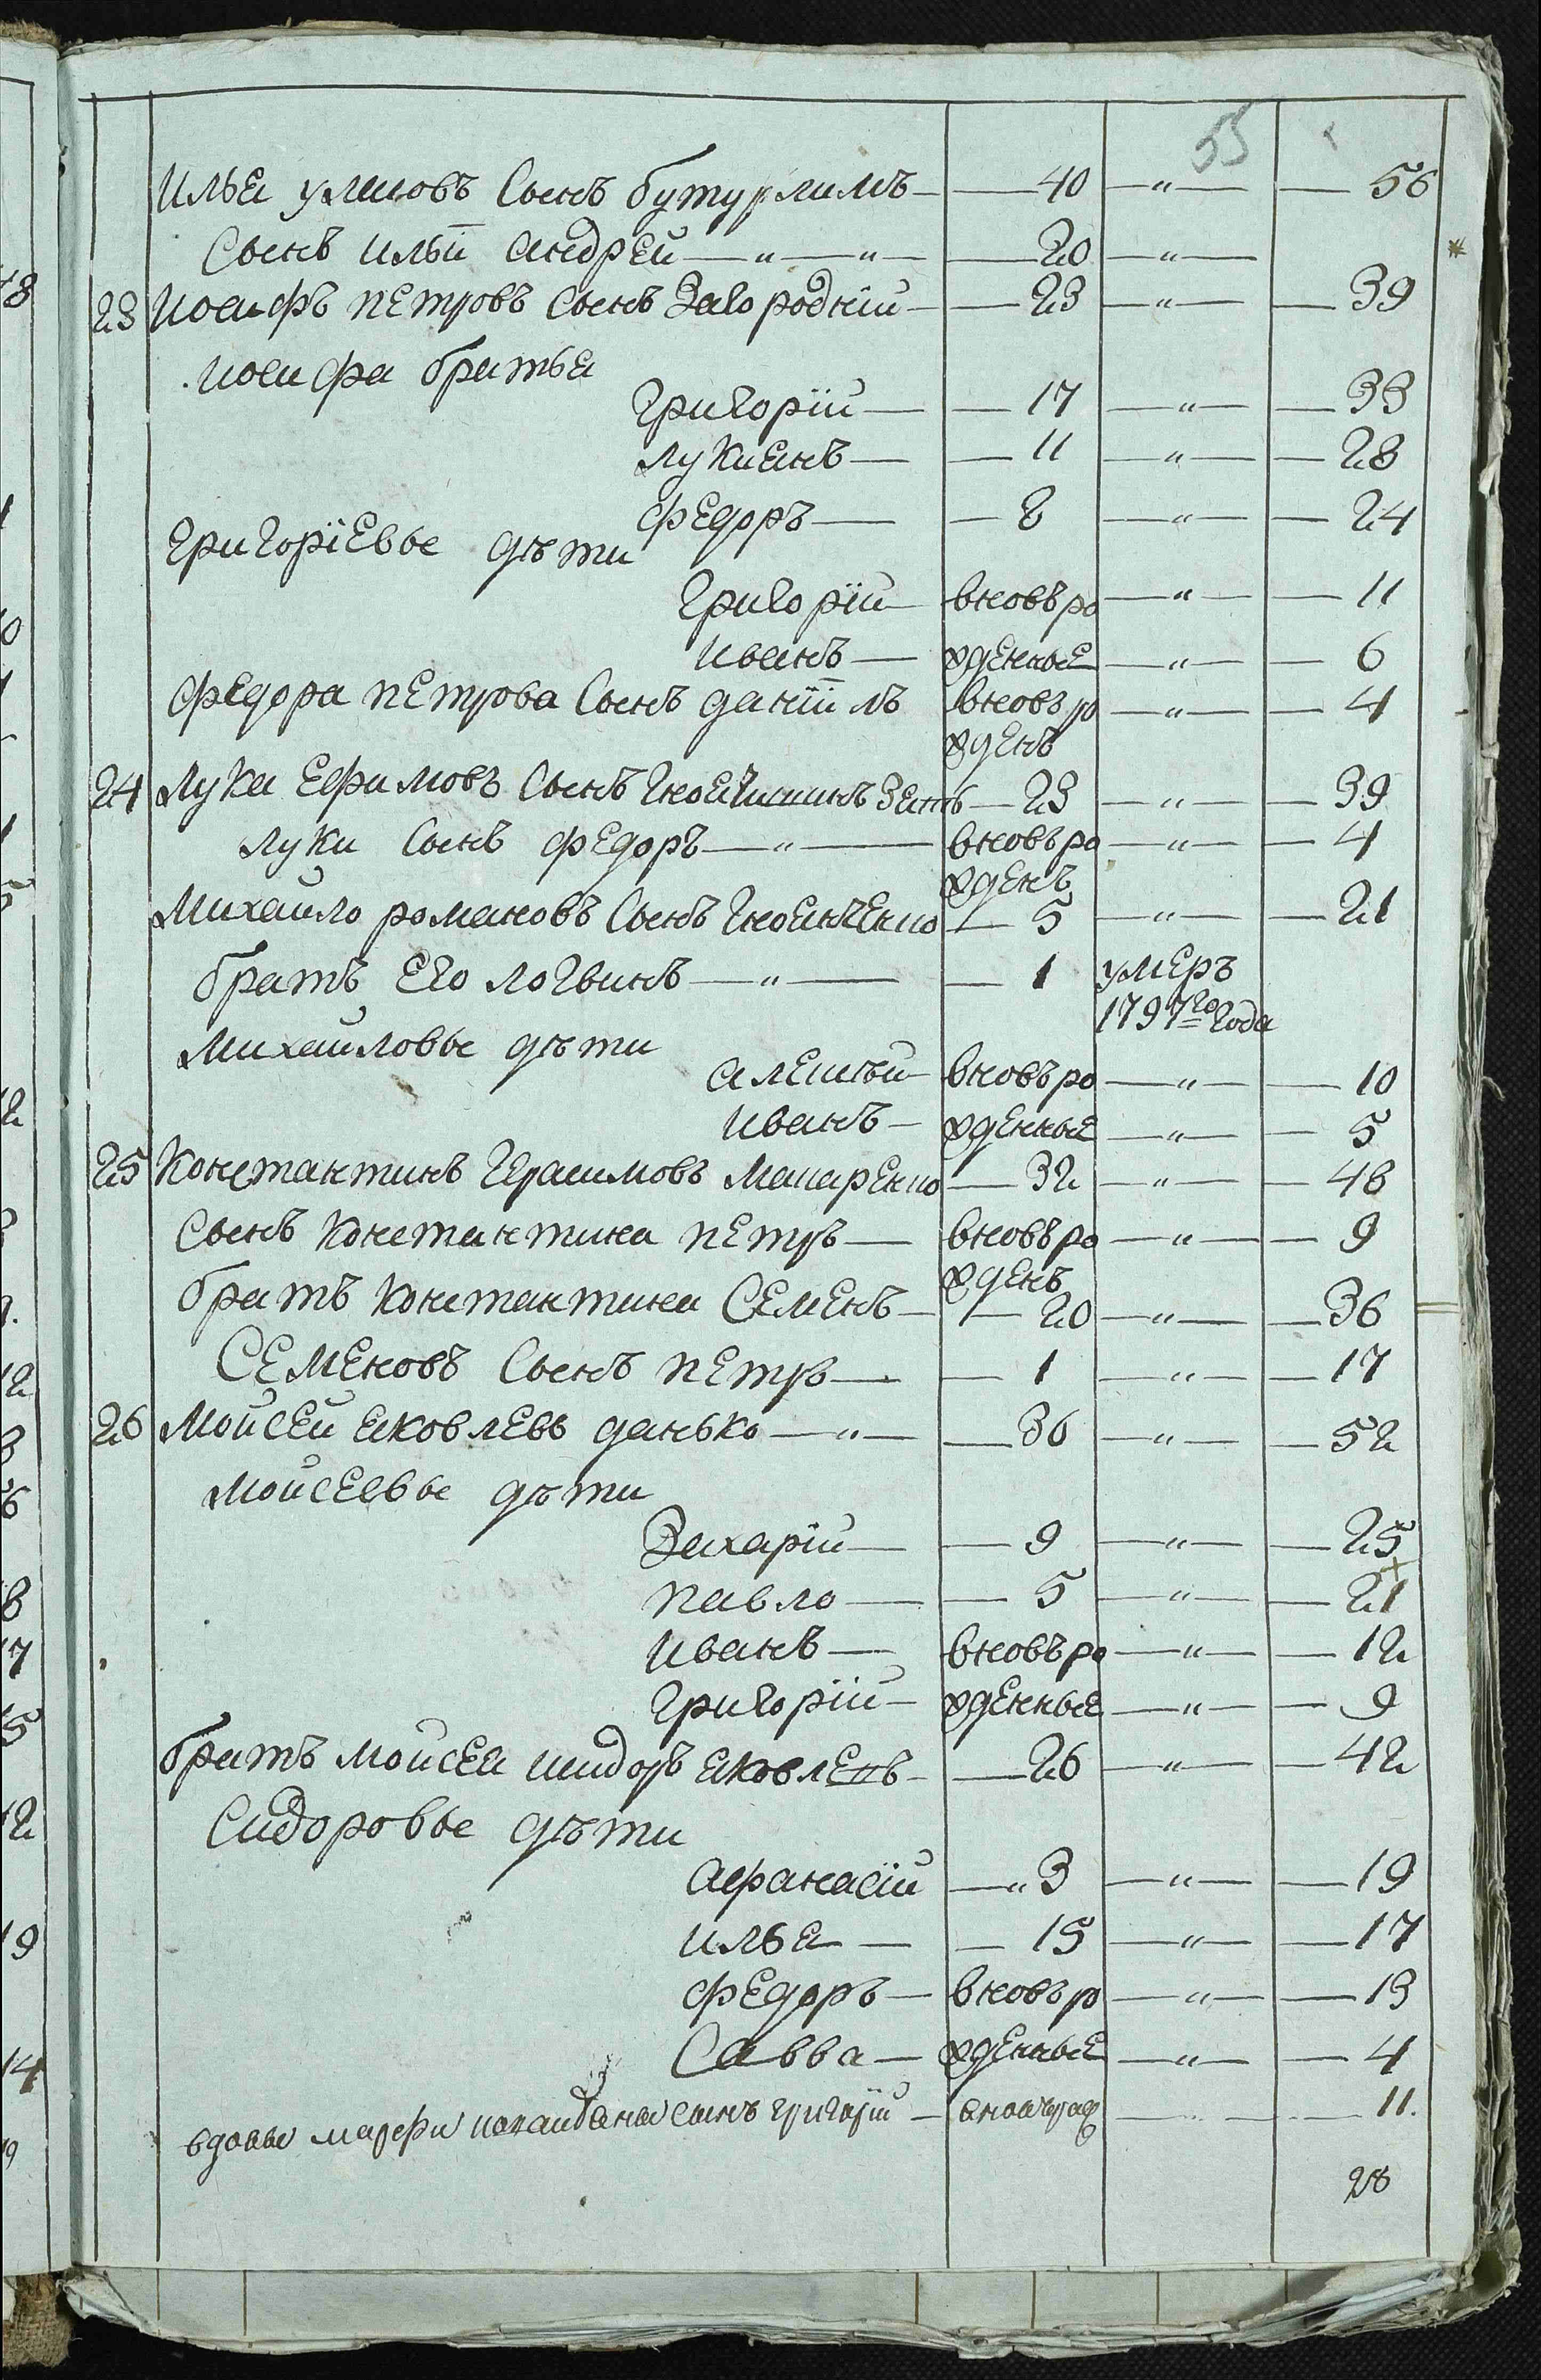 55
Илья Сынъ бутурлимъ — 40 — " — 56
Сынъ Ильи андрей — " — " — 20 — " —
23 Иосифъ петровъ Сынъ Загородній — 23 — " — 39
Иосифа братья
Григорій — 17 — " — 33
Лукиянъ — 11 — " — 28
федоръ — 8 — " — 24
Григоріевы дѣти
Григорій вновъ ро — " — 11
Иванъ — жденные — " — 6
федора петрова Сынъ даніилъ вновъ ро — " — 4
жденъ
24 Лука Ефимовъ Сынъ — 23 — " — 39
Луки Сынъ федоръ — " — вновъ ро — " — 4
жденъ
Михайло романовъ Сынъ — 5 — " — 21
братъ Его логвинъ — " — 1 умеръ
1797го года
Михайловы дѣти
алексѣй вновъ ро — " — 10
Иванъ — жденные — " — 5
25 Константинъ Герасимовъ Макаренко — 32 — " — 48
Сынъ Константина петръ — вновъ ро — " — 9
жденъ
братъ Константина Семенъ — 20 — " — 36
Семеновъ Сынъ петръ — 1 — " — 17
26 Мойсей яковлевъ данько — " — 36 — " — 52
Мойсеевы дѣти
Захарій — 9 — " — 25
павло — 5 — " — 21
Иванъ — вновъ ро — " — 12
Григорій — жденные — " — 9
братъ Мойсея сидоръ яковлевъ — 26 — " — 42
Сидоровы дѣти
афанасій — " 3 — " — 19
Илья — 15 — " — 17
федоръ — вновъ ро — " — 13
Савва — жденные — " — 4
вдовы марфи сынъ григорій — — 11.
28